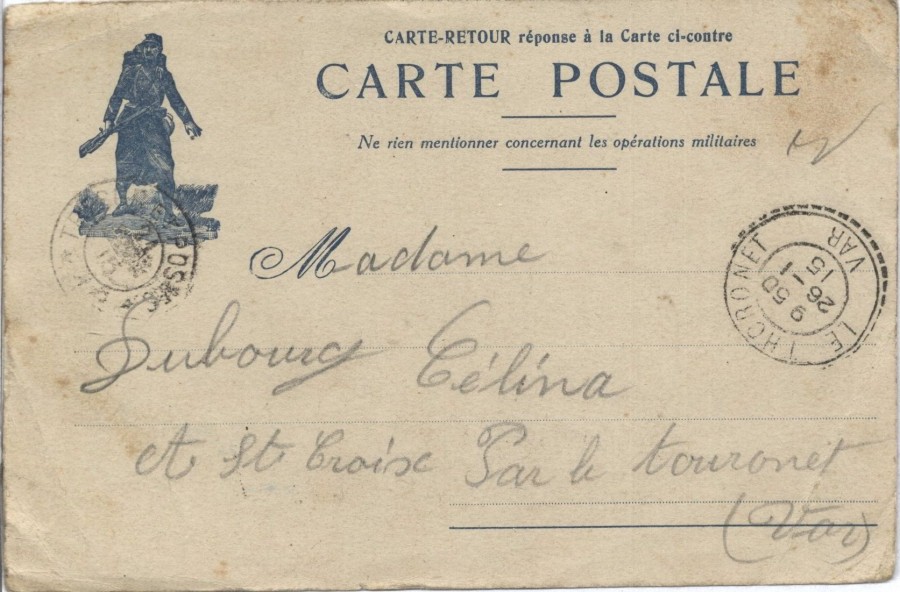 CARTE-RETOUR réponse à la Carte ci-contre
CARTE POSTALE
Ne rien mentionner concernant les opérations militaires
Madame
Dubourg Célina
A St Croix Par le touronet
(Var)
LE THORONET VAR
9 50
26 11
15
TRESOR ET POSTES